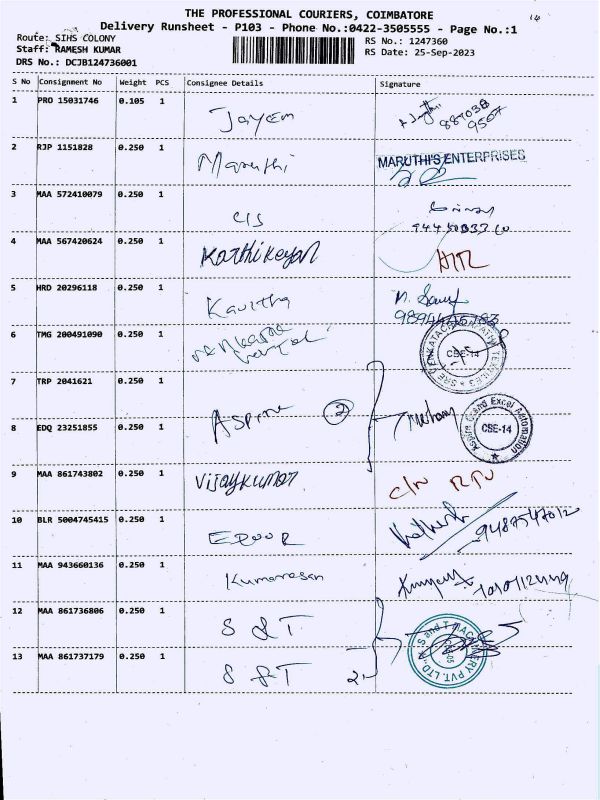 THE PROFESSIONAL COURIERS, COIMBATORE
Delivery Runsheet - P103 - Phone No.:0422-3505555 - Page No.:1
Route: SIHS COLONY
RS No.: 1247360
Staff: RAMESH KUMAR
RS Date: 25-Sep-2023
DRS No.: DCJB124736001
S No Consignment No Weight PCS Consignee Details Signature
1 PRO 15031746 0.105 1 Jayem
2 RJP 1151828 0.250 1 Maruthi MARUTHI'S ENTERPRISES
3 MAA 572410079 0.250 1 CIS
4 MAA 567420624 0.250 1 Karthikeyan
5 HRD 20296118 0.250 1 Kavitha
6 TMG 200491090 0.250 1 SREE VENKATACHALAPATHI TEXTILES CBE-14
7 TRP 2041621 0.250 1
Aspire 2 Aspire Grand Excel Automation CSE-14
8 EDQ 23251855 0.250 1
9 MAA 861743802 0.250 1 Vijaykumar
10 BLR 5004745415 0.250 1 EROOR
11 MAA 943660136 0.250 1 Kumaresan
12 MAA 861736806 0.250 1 S & T S and T MACHINERY PVT. LTD.
13 MAA 861737179 0.250 1 S & T 2